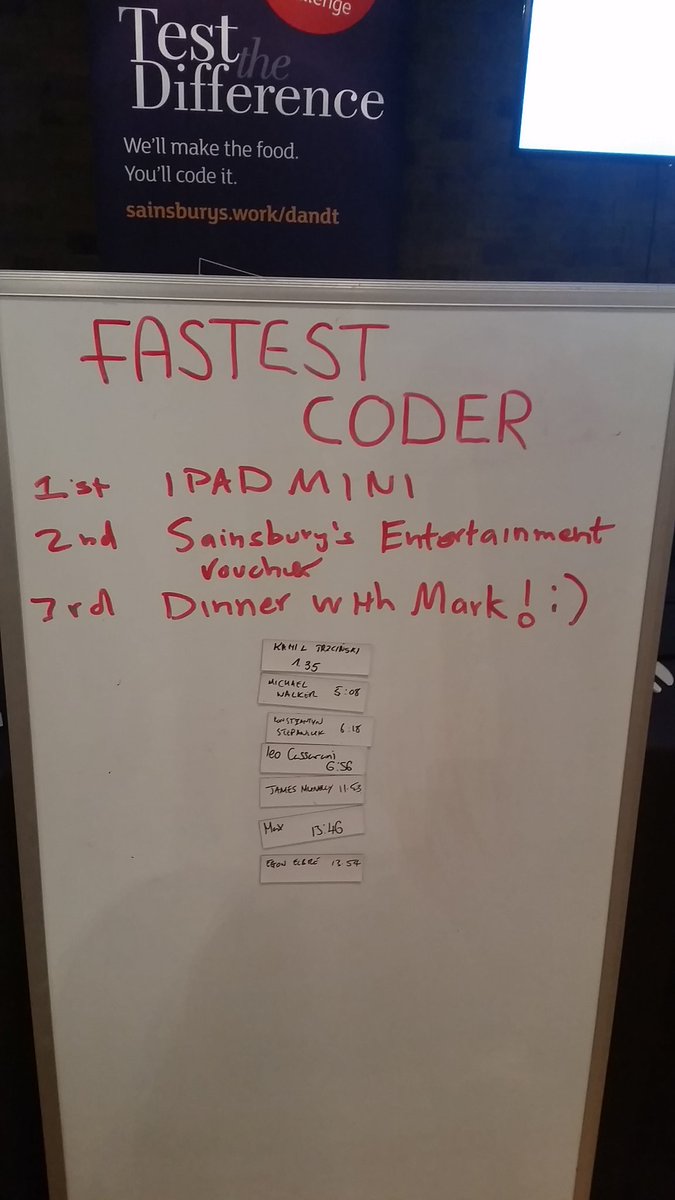 Test the
Difference
We'll make the food.
You'll code it.
sainsburys.work/dandt
FASTEST
CODER
1st IPAD MINI
2nd Sainsbury's Entertainment
voucher
3rd Dinner with Mark! :)
KAMIL TRZCIŃSKI
1.35
MICHAEL
WALKER 5:08
KONSTIANTYN
STEPANIUK 6:18
leo Cassarani
6:56
JAMES 11:53
Max 13:46
EGON ELBRE 13:54